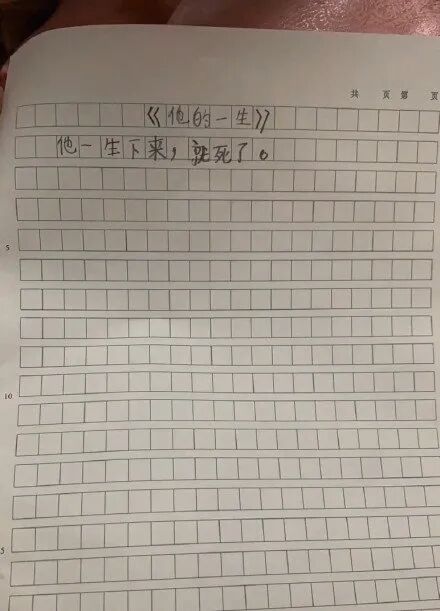 共 页 第 页
《他的一生》
他一生下来，就死了。
5
10
5